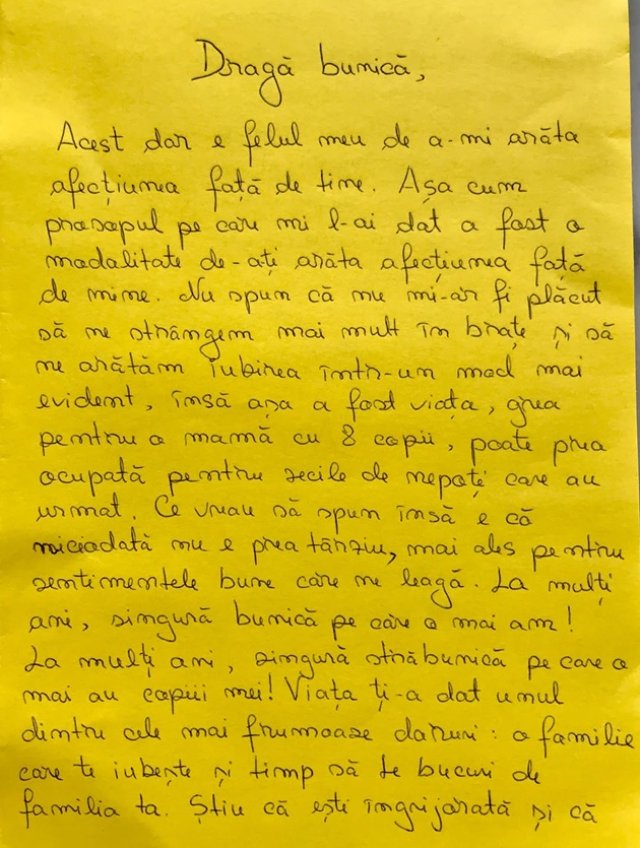 Dragă bunică,
Acest dar e felul meu de a-mi arăta
afecțiunea față de tine. Așa cum
prosopul pe care mi l-ai dat a fost o
modalitate de-ați arăta afecțiunea față
de mine. Nu spun că nu mi-ar fi plăcut
să ne strângem mai mult în brațe și să
ne arătăm iubirea într-un mod mai
evident, însă așa a fost viața, grea
pentru o mamă cu 8 copii, poate prea
ocupată pentru zecile de nepoți care au
urmat. Ce vreau să spun însă e că
niciodată nu e prea târziu, mai ales pentru
sentimentele bune care ne leagă. La mulți
ani, singură bunică pe care o mai am!
La mulți ani, singură străbunică pe care o
mai au copiii mei! Viața ți-a dat unul
dintre cele mai frumoase daruri: o familie
care te iubește și timp să te bucuri de
familia ta. Știu că ești îngrijorată și că